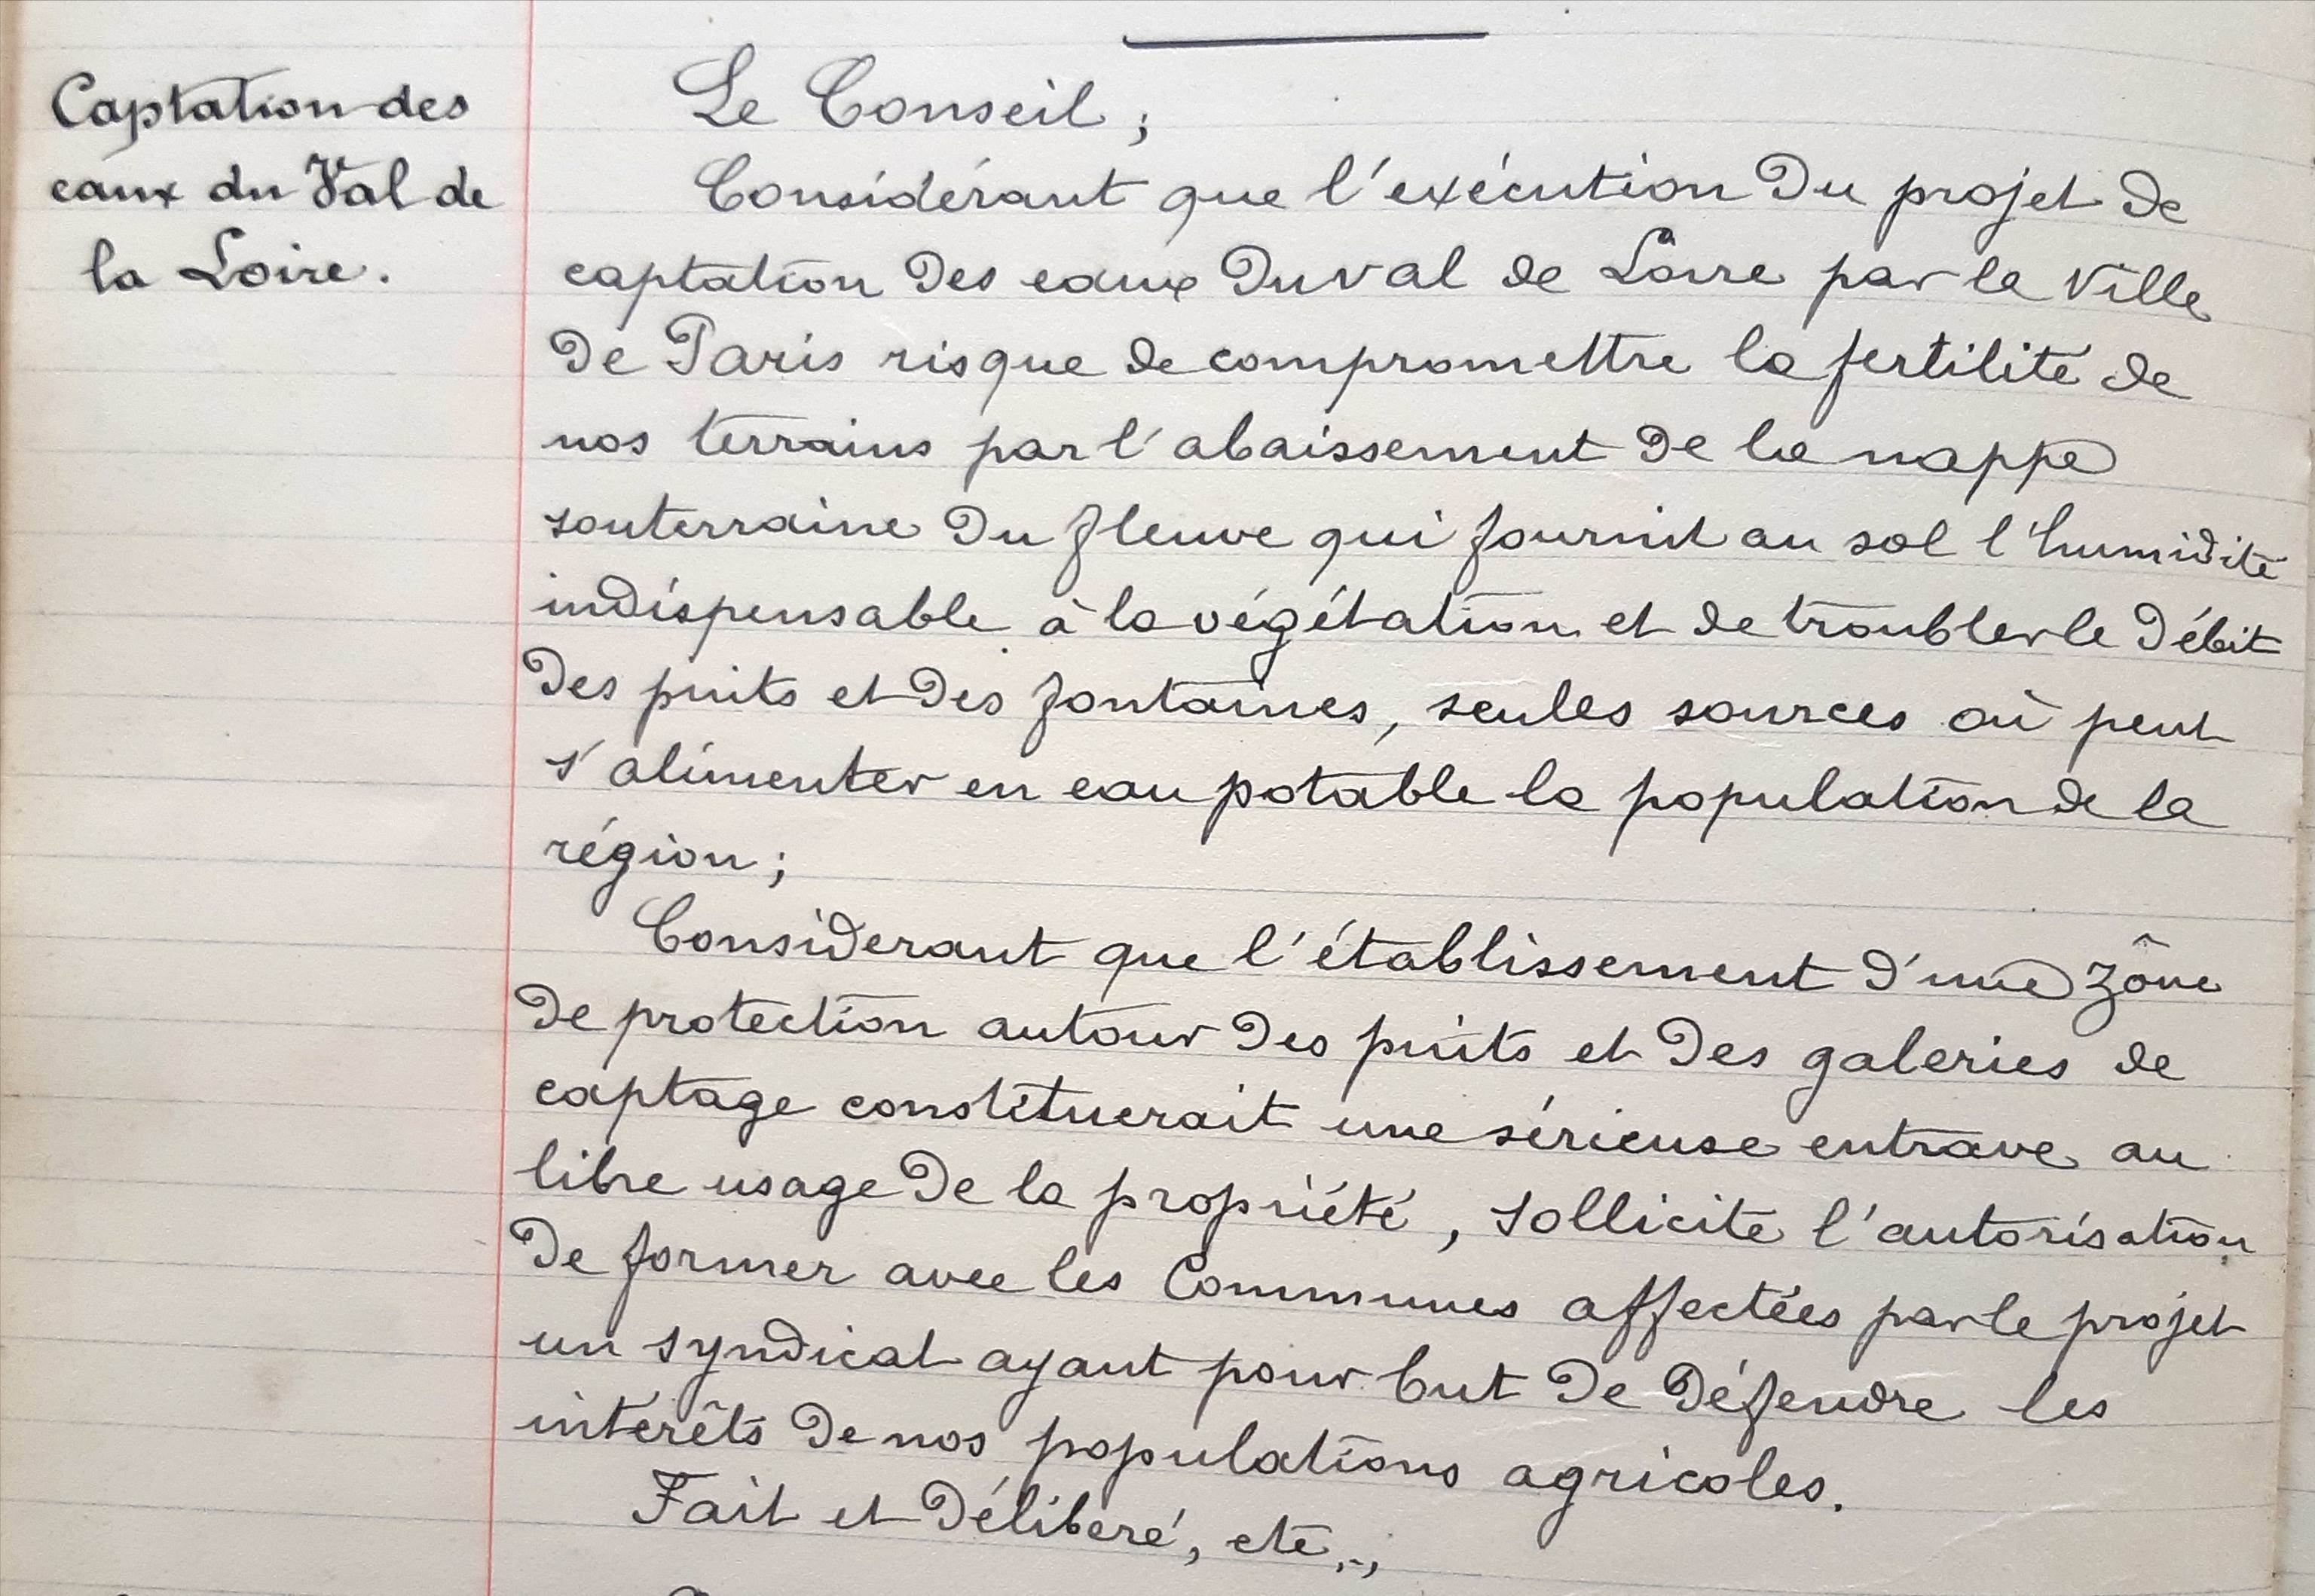 Captation des
eaux du Val de
la Loire.
Le Conseil ;
Considérant que l'exécution du projet de
captation des eaux du val de Loire par la Ville
de Paris risque de compromettre la fertilité de
nos terrains par l'abaissement de la nappe
souterraine du fleuve qui fournit au sol l'humidité
indispensable à la végétation et de troubler le débit
des puits et des fontaines, seules sources où peut
s'alimenter en eau potable la population de la
région ;
Considerant que l'établissement d'une zône
de protection autour des puits et des galeries de
captage constituerait une sérieuse entrave au
libre usage de la propriété, sollicite l'autorisation
de former avec les Communes affectées par le projet
un syndicat ayant pour but de défendre les
intérêts de nos populations agricoles.
Fait et Délibéré, etc..,